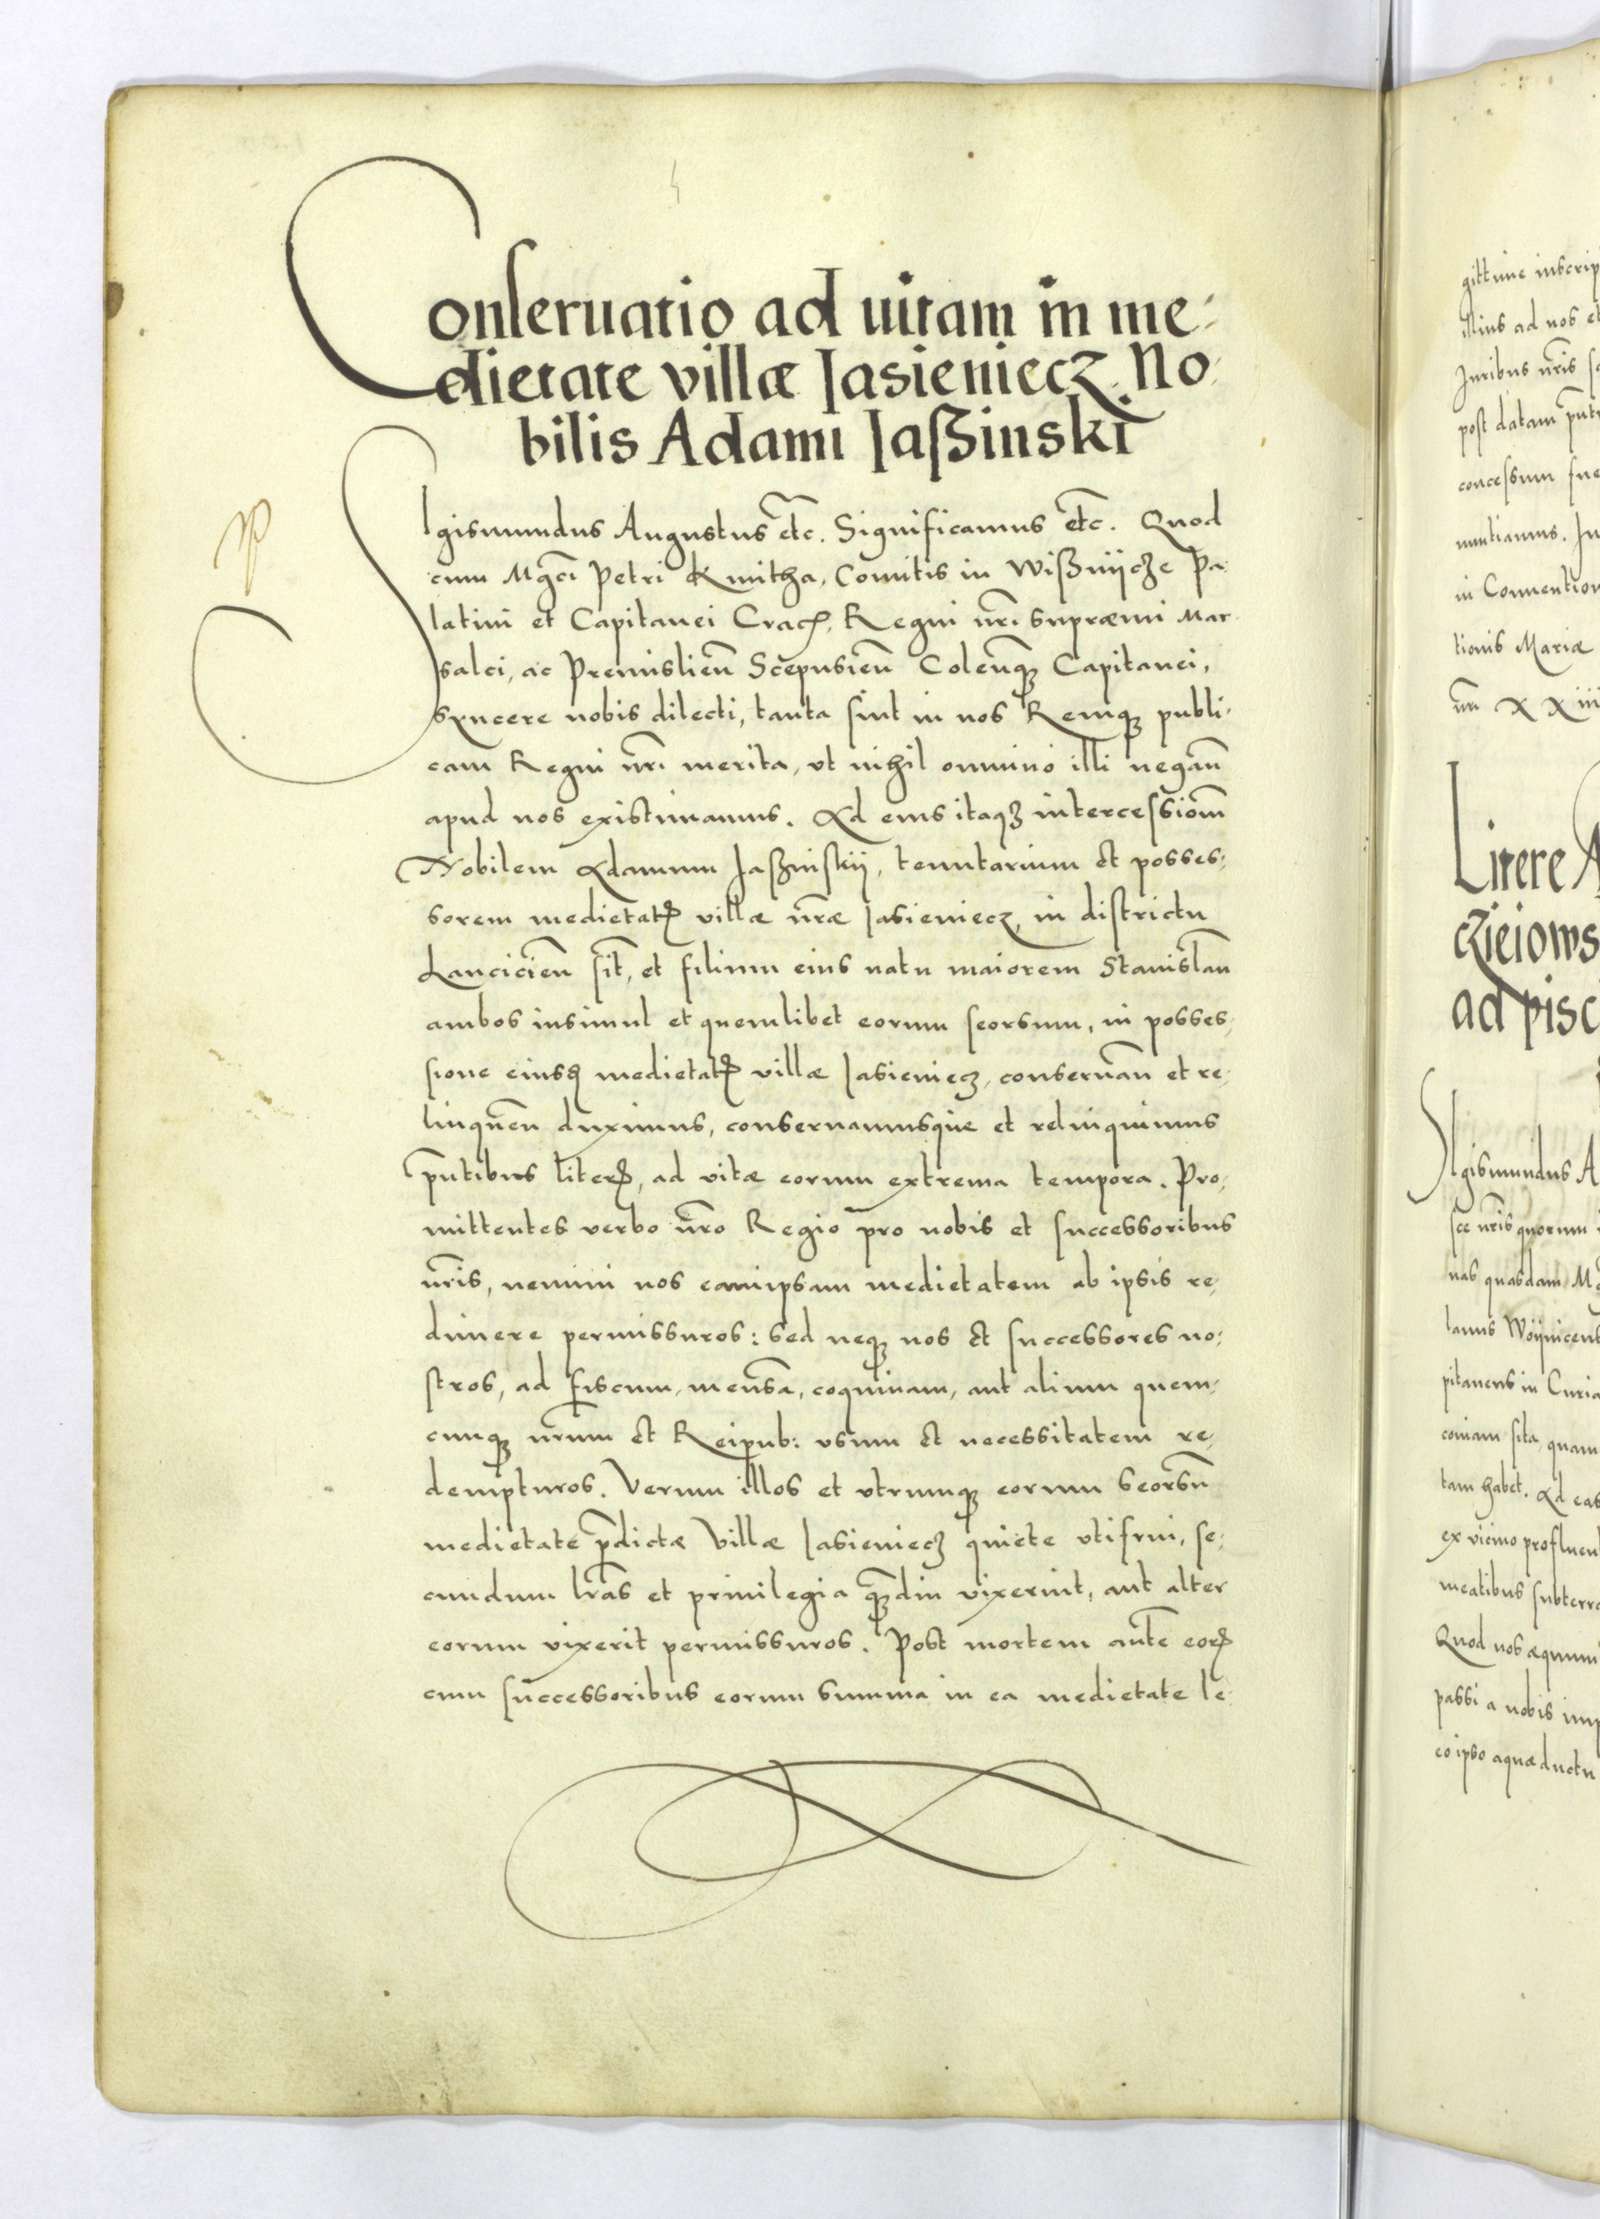 Conseruatio ad uitam in me-
dietate villæ Jasieniecz No-
bilis Adami Jaßinski
Sigismundus Augustus etc. Significamus etc. Quod
cum Mgci Petri Kmitha, Comitis in Wißnijcze Pa-
latini et Capitanei Crac̃, Regni nr̃i supræmi Mar-
salci, ac Premislień Scepusień Coleñqꝫ Capitanei,
syncere nobis dilecti, tanta sint in nos Remqꝫ publi-
cam Regni nr̃i merita, vt nihil omnino illi negañ
apud nos existimamus. Ad eius itaqꝫ intercessiom̃
Nobilem Adamum Jaßinskij, tenutarium et posses-
sorem medietatꝭ villæ nr̃æ Jasieniecz, in districtu
Lancicień sit̃, et filium eius natu maiorem Stanislañ
ambos insimul et quemlibet eorum seorsum, in posses-
sione eiusd medietatꝭ villæ Jasieniecz, conseruañ et re-
linqueñ duximus, conseruamusque et relinquimus
pñtibus literꝭ, ad vitæ eorum extrema tempora. Pro-
mittentes verbo nr̃o Regio pro nobis et successoribus
nr̃is, nemini nos eamipsam medietatem ab ipsis re-
dimere permissuros: sed neqꝫ nos et successores no-
stros, ad fiscum, mensã, coquinam, aut alium quem-
cunqꝫ nr̃um et Reipub: vsum et necessitatem re-
dempturos. Verum illos et vtrumqꝫ eorum seorsũ
medietate p̃dictæ Villæ Jasieniecz quiete vtifrui, se-
cundum lr̃as et priuilegia qꝫ̃diu vixerint, aut alter
eorum vixerit permissuros. Post mortem aut̃e eorꝝ
cum successoribus eorum summa in ea medietate le-
gittime inscrip
illius ad nos et
Juribus nr̃is
post datam pñt
concessum fue
nuntiamus. In
in Conuention
tionis Mariæ
XXiii
Litere A
czieiows
ad pisc
Sigismundus A
sce nr̃is quorum
nas quasdam
lanus Woijnicens
pitaneus in Curia
coniam sita, quam
tam habet. Ad eas
ex vicino profluen
meatibus subterra
Quod nos æquum
passi a nobis imp
eo ipso aquæductu